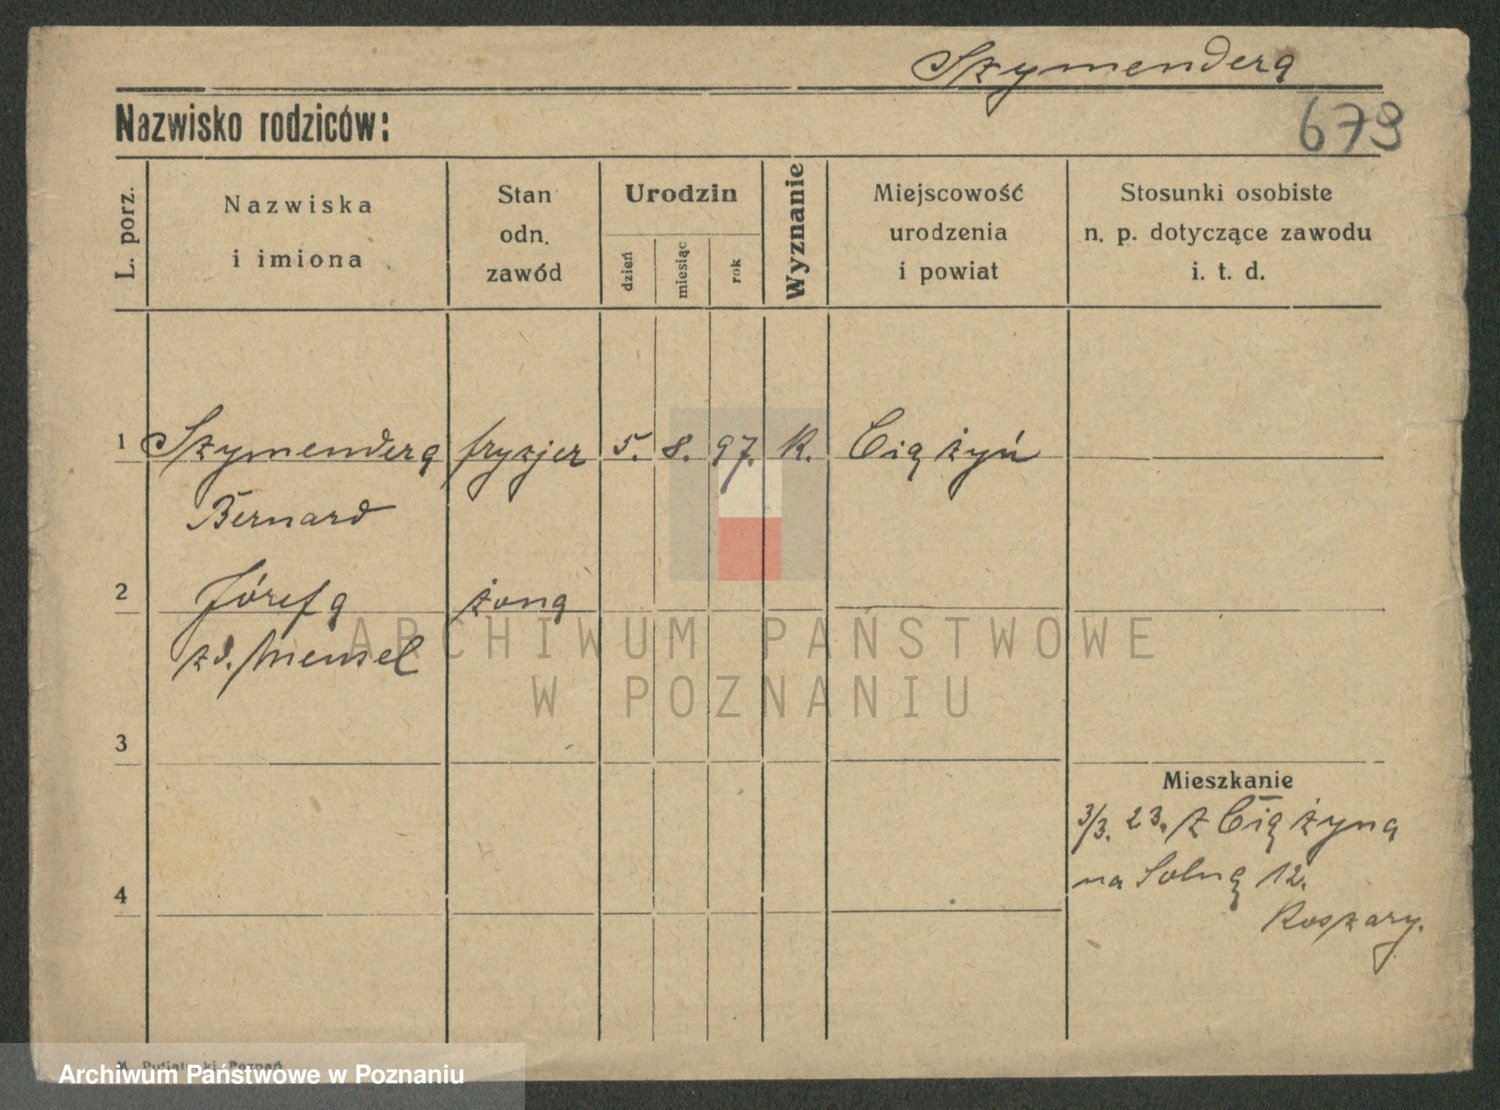 Szymendera
679
Nazwisko rodziców:
L. porz.
Nazwiska
i imiona
Stan
odn.
zawód
Urodzin
dzień
miesiąc
rok
Wyznanie
Miejscowość
urodzenia
i powiat
Stosunki osobiste
n. p. dotyczące zawodu
i. t. d.
1 Szymendera fryzjer 5. 8. 97. K. Ciążyń
Bernard
2 Józefa żona
zd. Menzel
ARCHIWUM PAŃSTWOWE
W POZNANIU
3
Mieszkanie
3/3. 23. z Ciążyna
4
na Solną 12.
Koszary.
Poznań
Archiwum Państwowe w Poznaniu